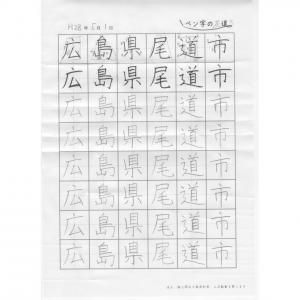 H28年5月1日
ペン字の道
広島県尾道市
広島県尾道市
広島県尾道市
広島県尾道市
広島県尾道市
広島県尾道市
広島県尾道市
広島県尾道市